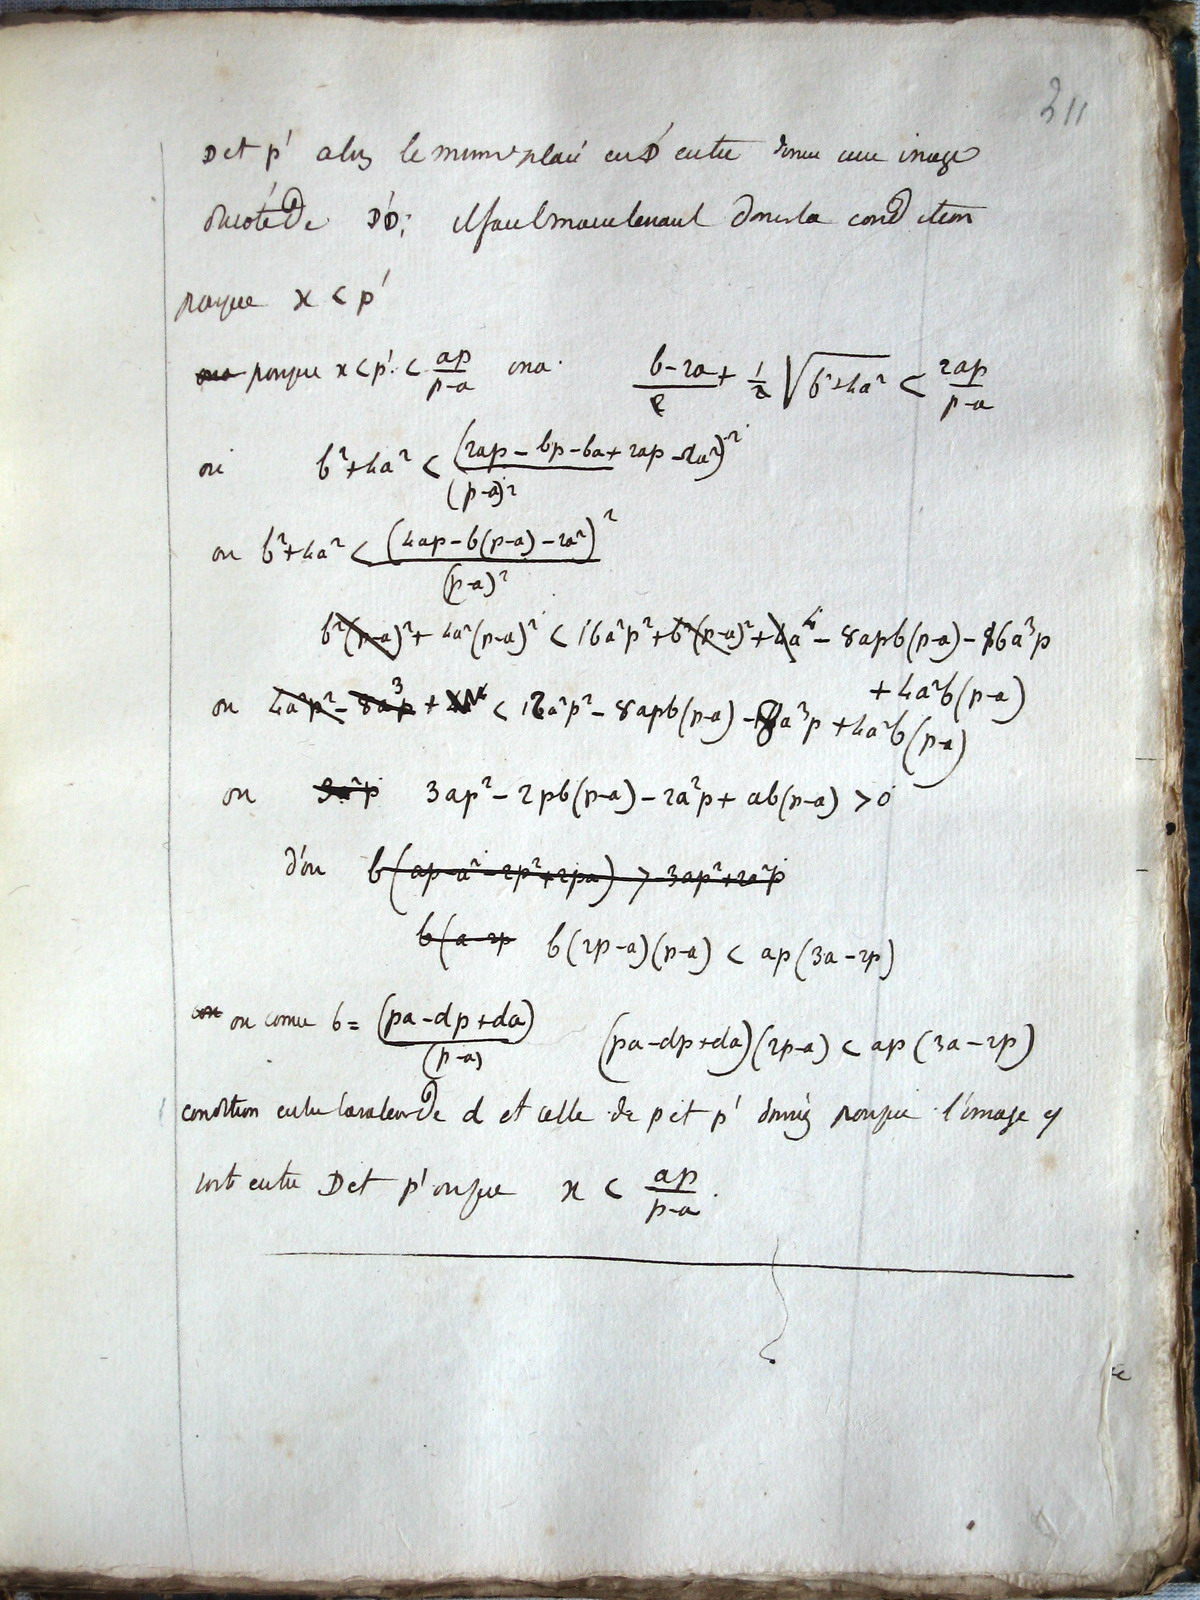 211
D et p' alors le même placé en D' entre donne une image
du côté de D'D; il faut maintenant donner la condition
pour que x < p'
ona pour que x < p' < ap/(p-a) on a (b-2a)/2 + 1/2 √(b²+4a²) < 2ap/(p-a)
ou b²+4a² < (2ap - bp - ba + 2ap - 2a²)²/(p-a)²
ou b²+4a² < (4ap - b(p-a) - 2a²)²/(p-a)²
b²(p-a)² + 4a²(p-a)² < 16a²p² + b²(p-a)² + 4a⁴ - 8apb(p-a) - 16a³p
+ 4a²b(p-a)
ou 4a²p² - 8a³p + 4a⁴ < 12a²p² - 8apb(p-a) - 8a³p + 4a²b(p-a)
ou 3a²p 3ap² - 2pb(p-a) - 2a²p + ab(p-a) > 0
d'où b(ap-a²-2p²+2pa) > -3ap²+2a²p
b(a-2p b(2p-a)(p-a) < ap(3a-2p)
ou comme b = (pa-dp+da)/(p-a) (pa-dp+da)(2p-a) < ap(3a-2p)
condition entre la valeur de d et celle de p et p' donnés pour que l'image y
soit entre D et p' ou que x < ap/(p-a).